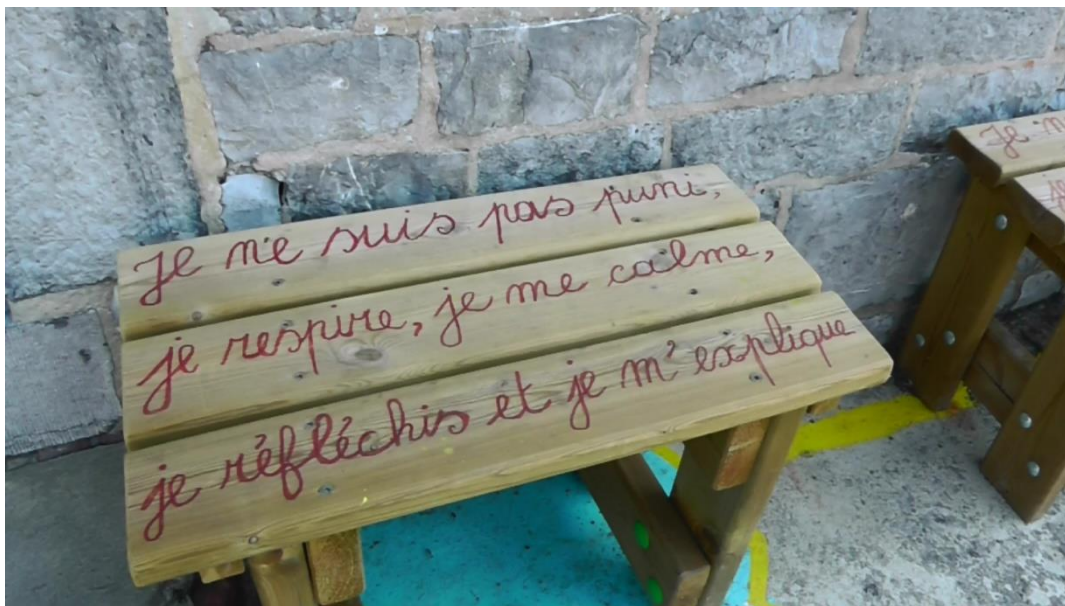 Je ne suis pas puni,
je respire, je me calme,
je réfléchis et je m'explique
Je
je